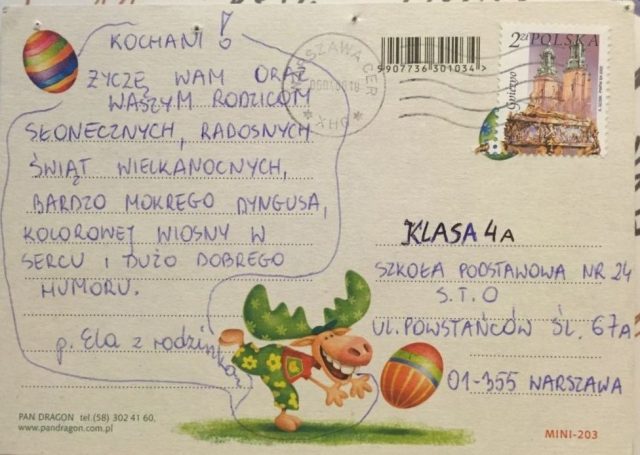 KOCHANI!
ŻYCZĘ WAM ORAZ
WASZYM RODZICOM
SŁONECZNYCH, RADOSNYCH
ŚWIĄT WIELKANOCNYCH,
BARDZO MOKREGO DYNGUSA,
KOLOROWEJ WIOSNY W
SERCU I DUŻO DOBREGO
HUMORU.
p. Ela z rodzinką
PAN DRAGON tel.(58) 302 41 60,
www.pandragon.com.pl
WARSZAWA CER
5907736301034
2zł POLSKA
Gniezno
KLASA 4A
SZKOŁA PODSTAWOWA NR 24
S.T.O
UL. POWSTAŃCÓW ŚL. 67A
01-355 WARSZAWA
MINI-203